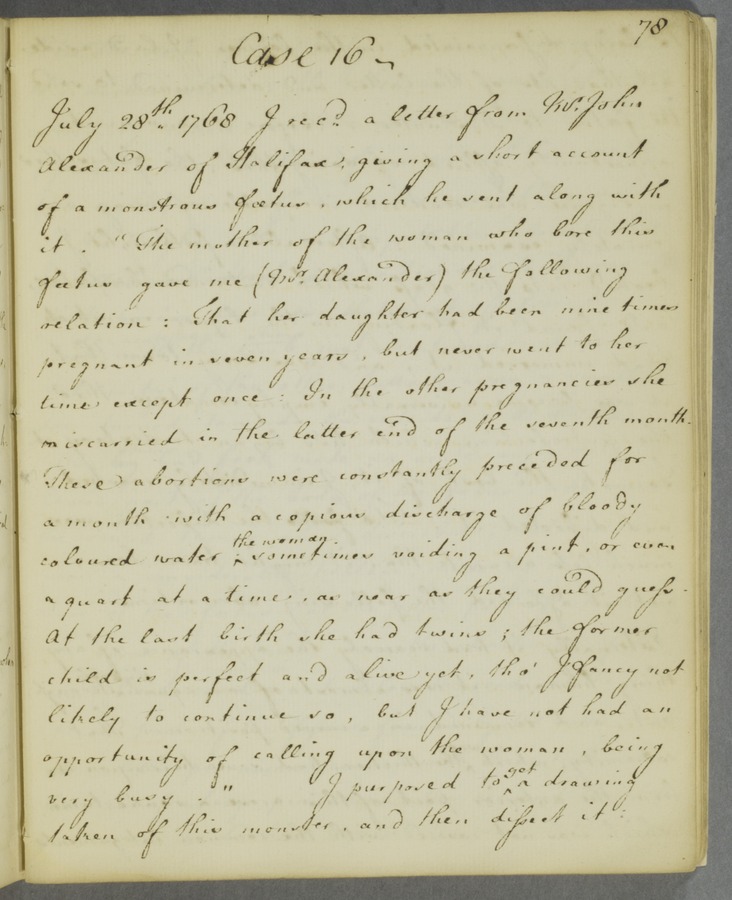 78
Case 16
July 28th 1768 I recd a letter from Mr. John
Alexander of Halifax, giving a short account
of a monstrous foetus, which he sent along with
it. "The mother of the woman who bore this
foetus gave me (Mr. Alexander) the following
relation: That her daughter had been nine times
pregnant in seven years, but never went to her
time except once: In the other pregnancies she
miscarried in the latter end of the seventh month.
These abortions were constantly preceded for
a month with a copious discharge of bloody
coloured water; the woman sometimes voiding a pint, or even
a quart at a time, as near as they could guess.
At the last birth she had twins; the former
child is perfect and alive yet, tho' I fancy not
likely to continue so, but I have not had an
opportunity of calling upon the woman, being
very busy." I purposed to get a drawing
taken of this monster, and then dissect it: